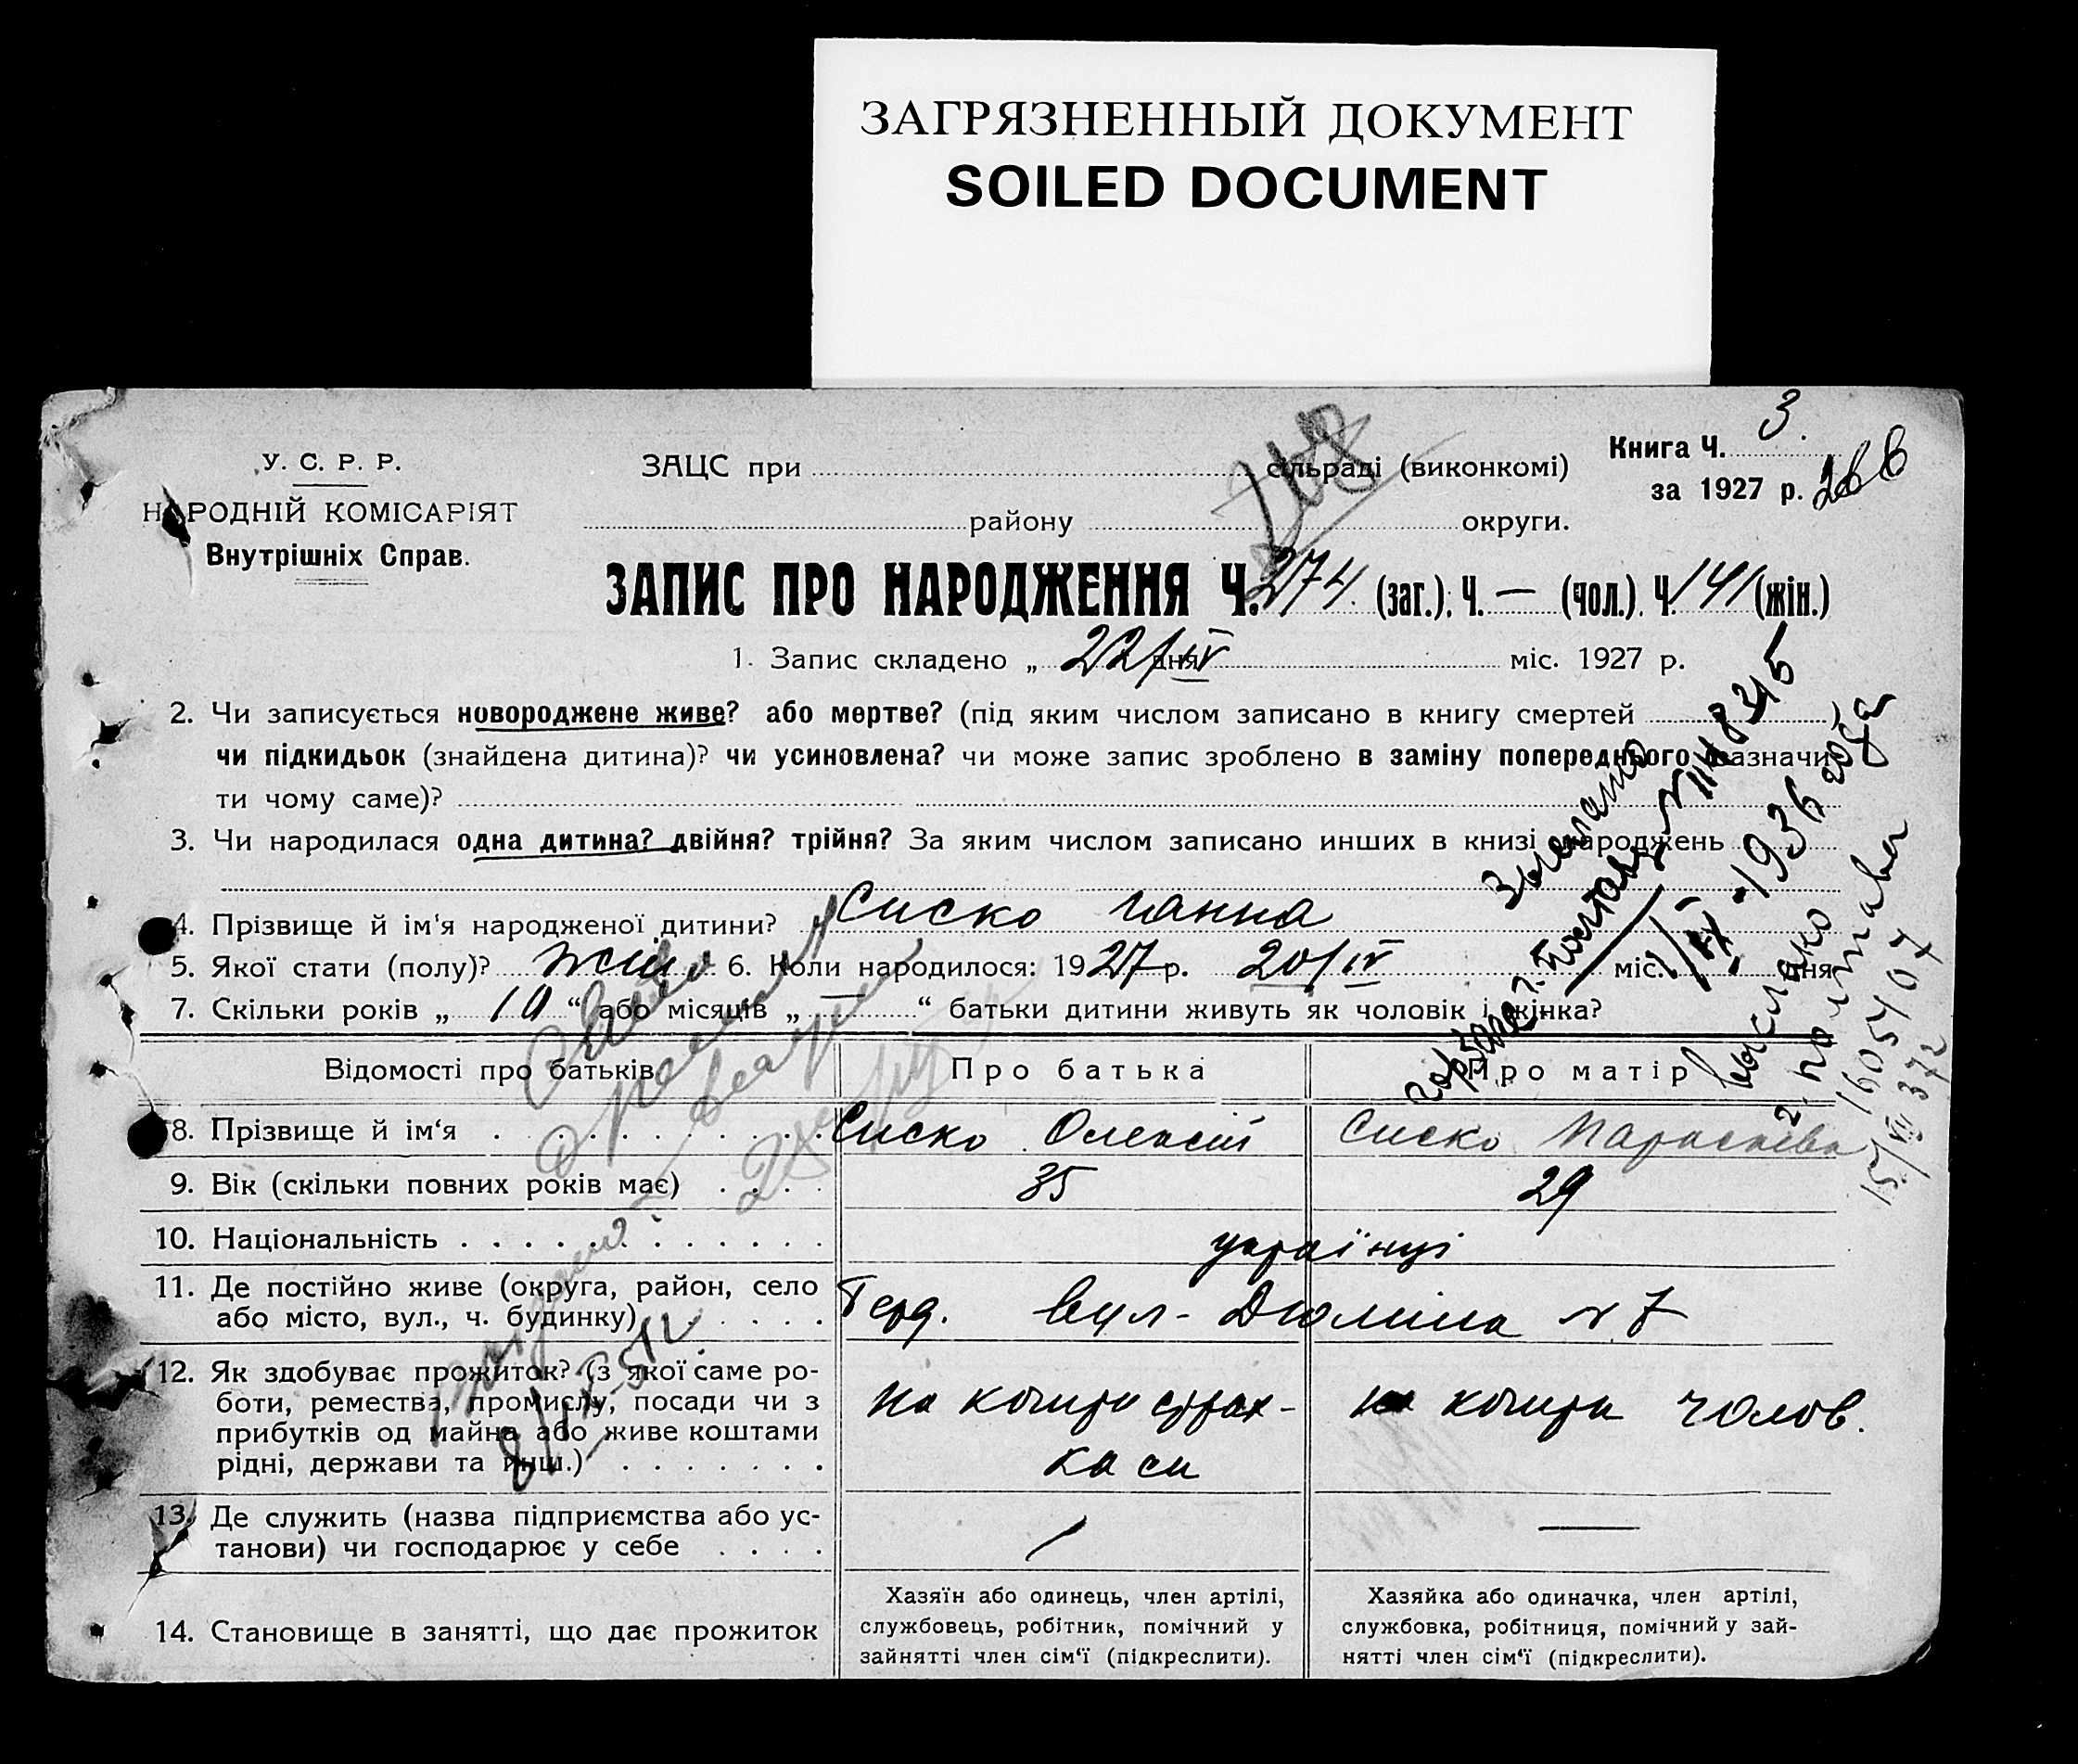 ЗАГРЯЗНЕННЫЙ ДОКУМЕНТ
SOILED DOCUMENT
У. С. Р. Р.
НАРОДНІЙ КОМІСАРІЯТ
Внутрішніх Справ.
ЗАЦС при сільраді (виконкомі)
району округи.
268
Книга Ч. 3.
за 1927 р. 266
ЗАПИС ПРО НАРОДЖЕННЯ Ч. 274. (заг.); Ч. — (чол.). Ч. 141 (жін.)
1. Запис складено „ 22/IV дня міс. 1927 р.
2. Чи записується новороджене живе? або мертве? (під яким числом записано в книгу смертей )
чи підкидьок (знайдена дитина)? чи усиновлена? чи може запис зроблено в заміну попереднього (зазначи-
ти чому саме)?
3. Чи народилася одна дитина? двійня? трійня? За яким числом записано инших в книзі народжень
4. Прізвище й ім'я народженої дитини? Сиско Ганна
5. Якої стати (полу)? жін. 6. Коли народилося: 1927 р. 20/IV міс. дня
7. Скільки років „ 10 “ або місяців „ — “ батьки дитини живуть як чоловік і жінка?
Відомості про батьків
Про батька
Про матір
8. Прізвище й ім'я
Сиско Олексій
Сиско Параскева
9. Вік (скільки повних років має)
35
29
10. Національність
українці
11. Де постійно живе (округа, район, село
або місто, вул., ч. будинку)
вул-
№ 7
12. Як здобуває прожиток? (з якої саме ро-
боти, ремества, промислу, посади чи з
прибутків од майна або живе коштами
рідні, держави та инш.)
на кошти страх-
каси
на кошти чолов.
13. Де служить (назва підприємства або ус-
танови) чи господарює у себе
—
14. Становище в занятті, що дає прожиток
Хазяїн або одинець, член артілі,
службовець, робітник, помічний у
зайнятті член сім'ї (підкреслити).
Хазяйка або одиначка, член артілі,
службовка, робітниця, помічний у зай-
нятті член сім'ї (підкреслити).
1936 года
выслано
г. Полтава